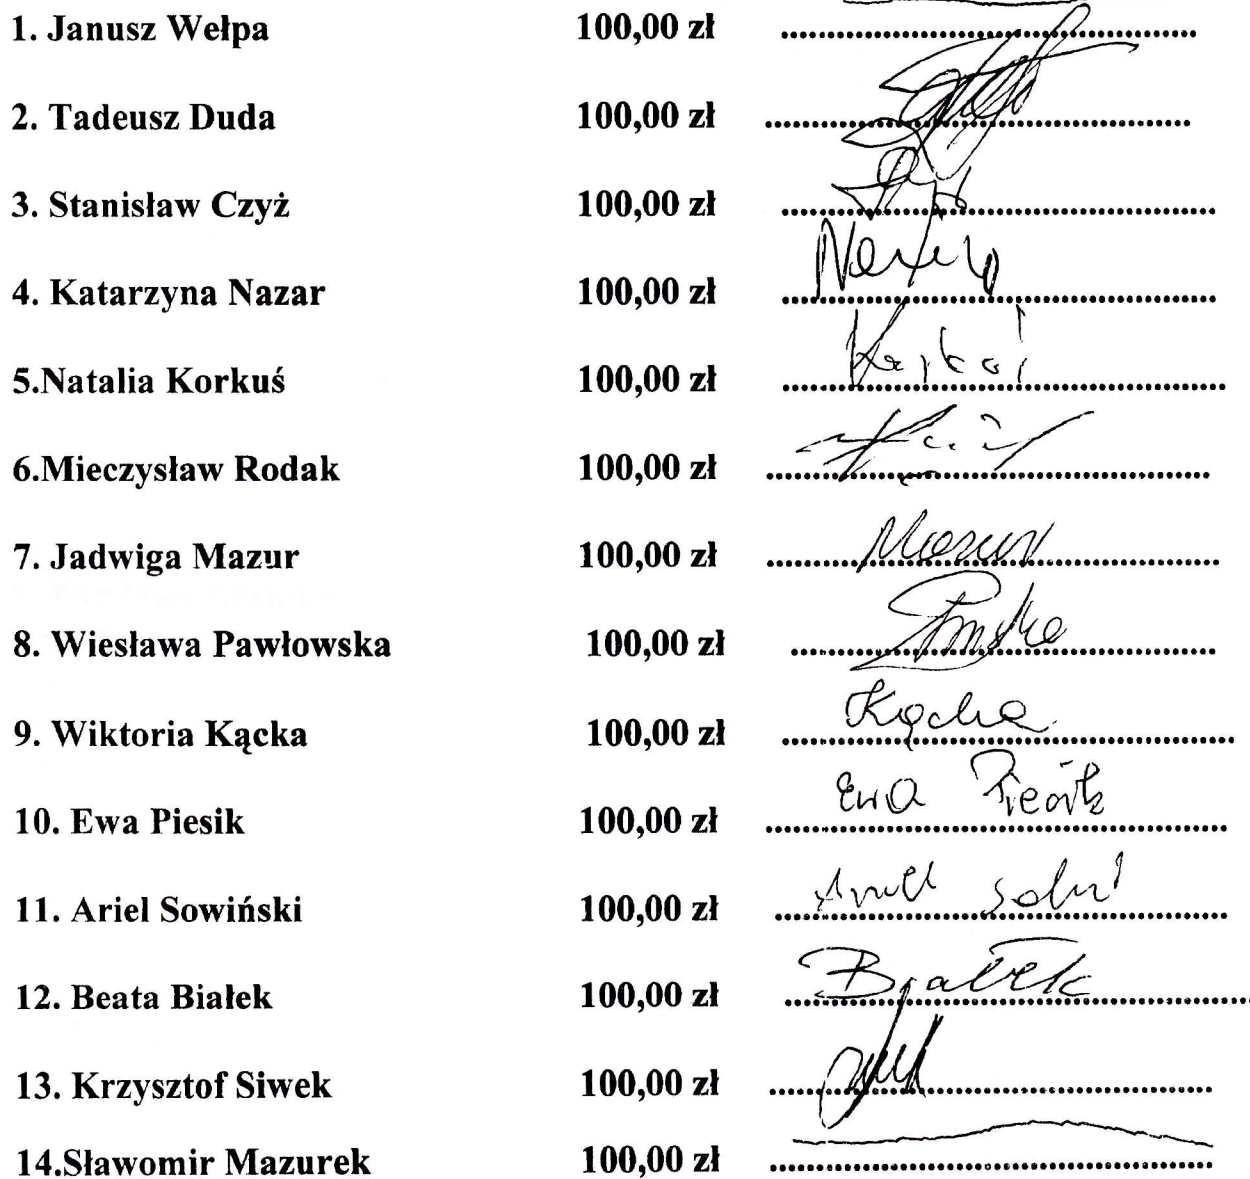 1. Janusz Wełpa 100,00 zł ........................................
2. Tadeusz Duda 100,00 zł ........................................
3. Stanisław Czyż 100,00 zł ........................................
4. Katarzyna Nazar 100,00 zł ........................................
5.Natalia Korkuś 100,00 zł ........................................
6.Mieczysław Rodak 100,00 zł ........................................
7. Jadwiga Mazur 100,00 zł Mazur
8. Wiesława Pawłowska 100,00 zł ........................................
9. Wiktoria Kącka 100,00 zł Kącka
10. Ewa Piesik 100,00 zł Ewa Piesik
11. Ariel Sowiński 100,00 zł Ariel
12. Beata Białek 100,00 zł Białek
13. Krzysztof Siwek 100,00 zł ........................................
14.Sławomir Mazurek 100,00 zł ........................................